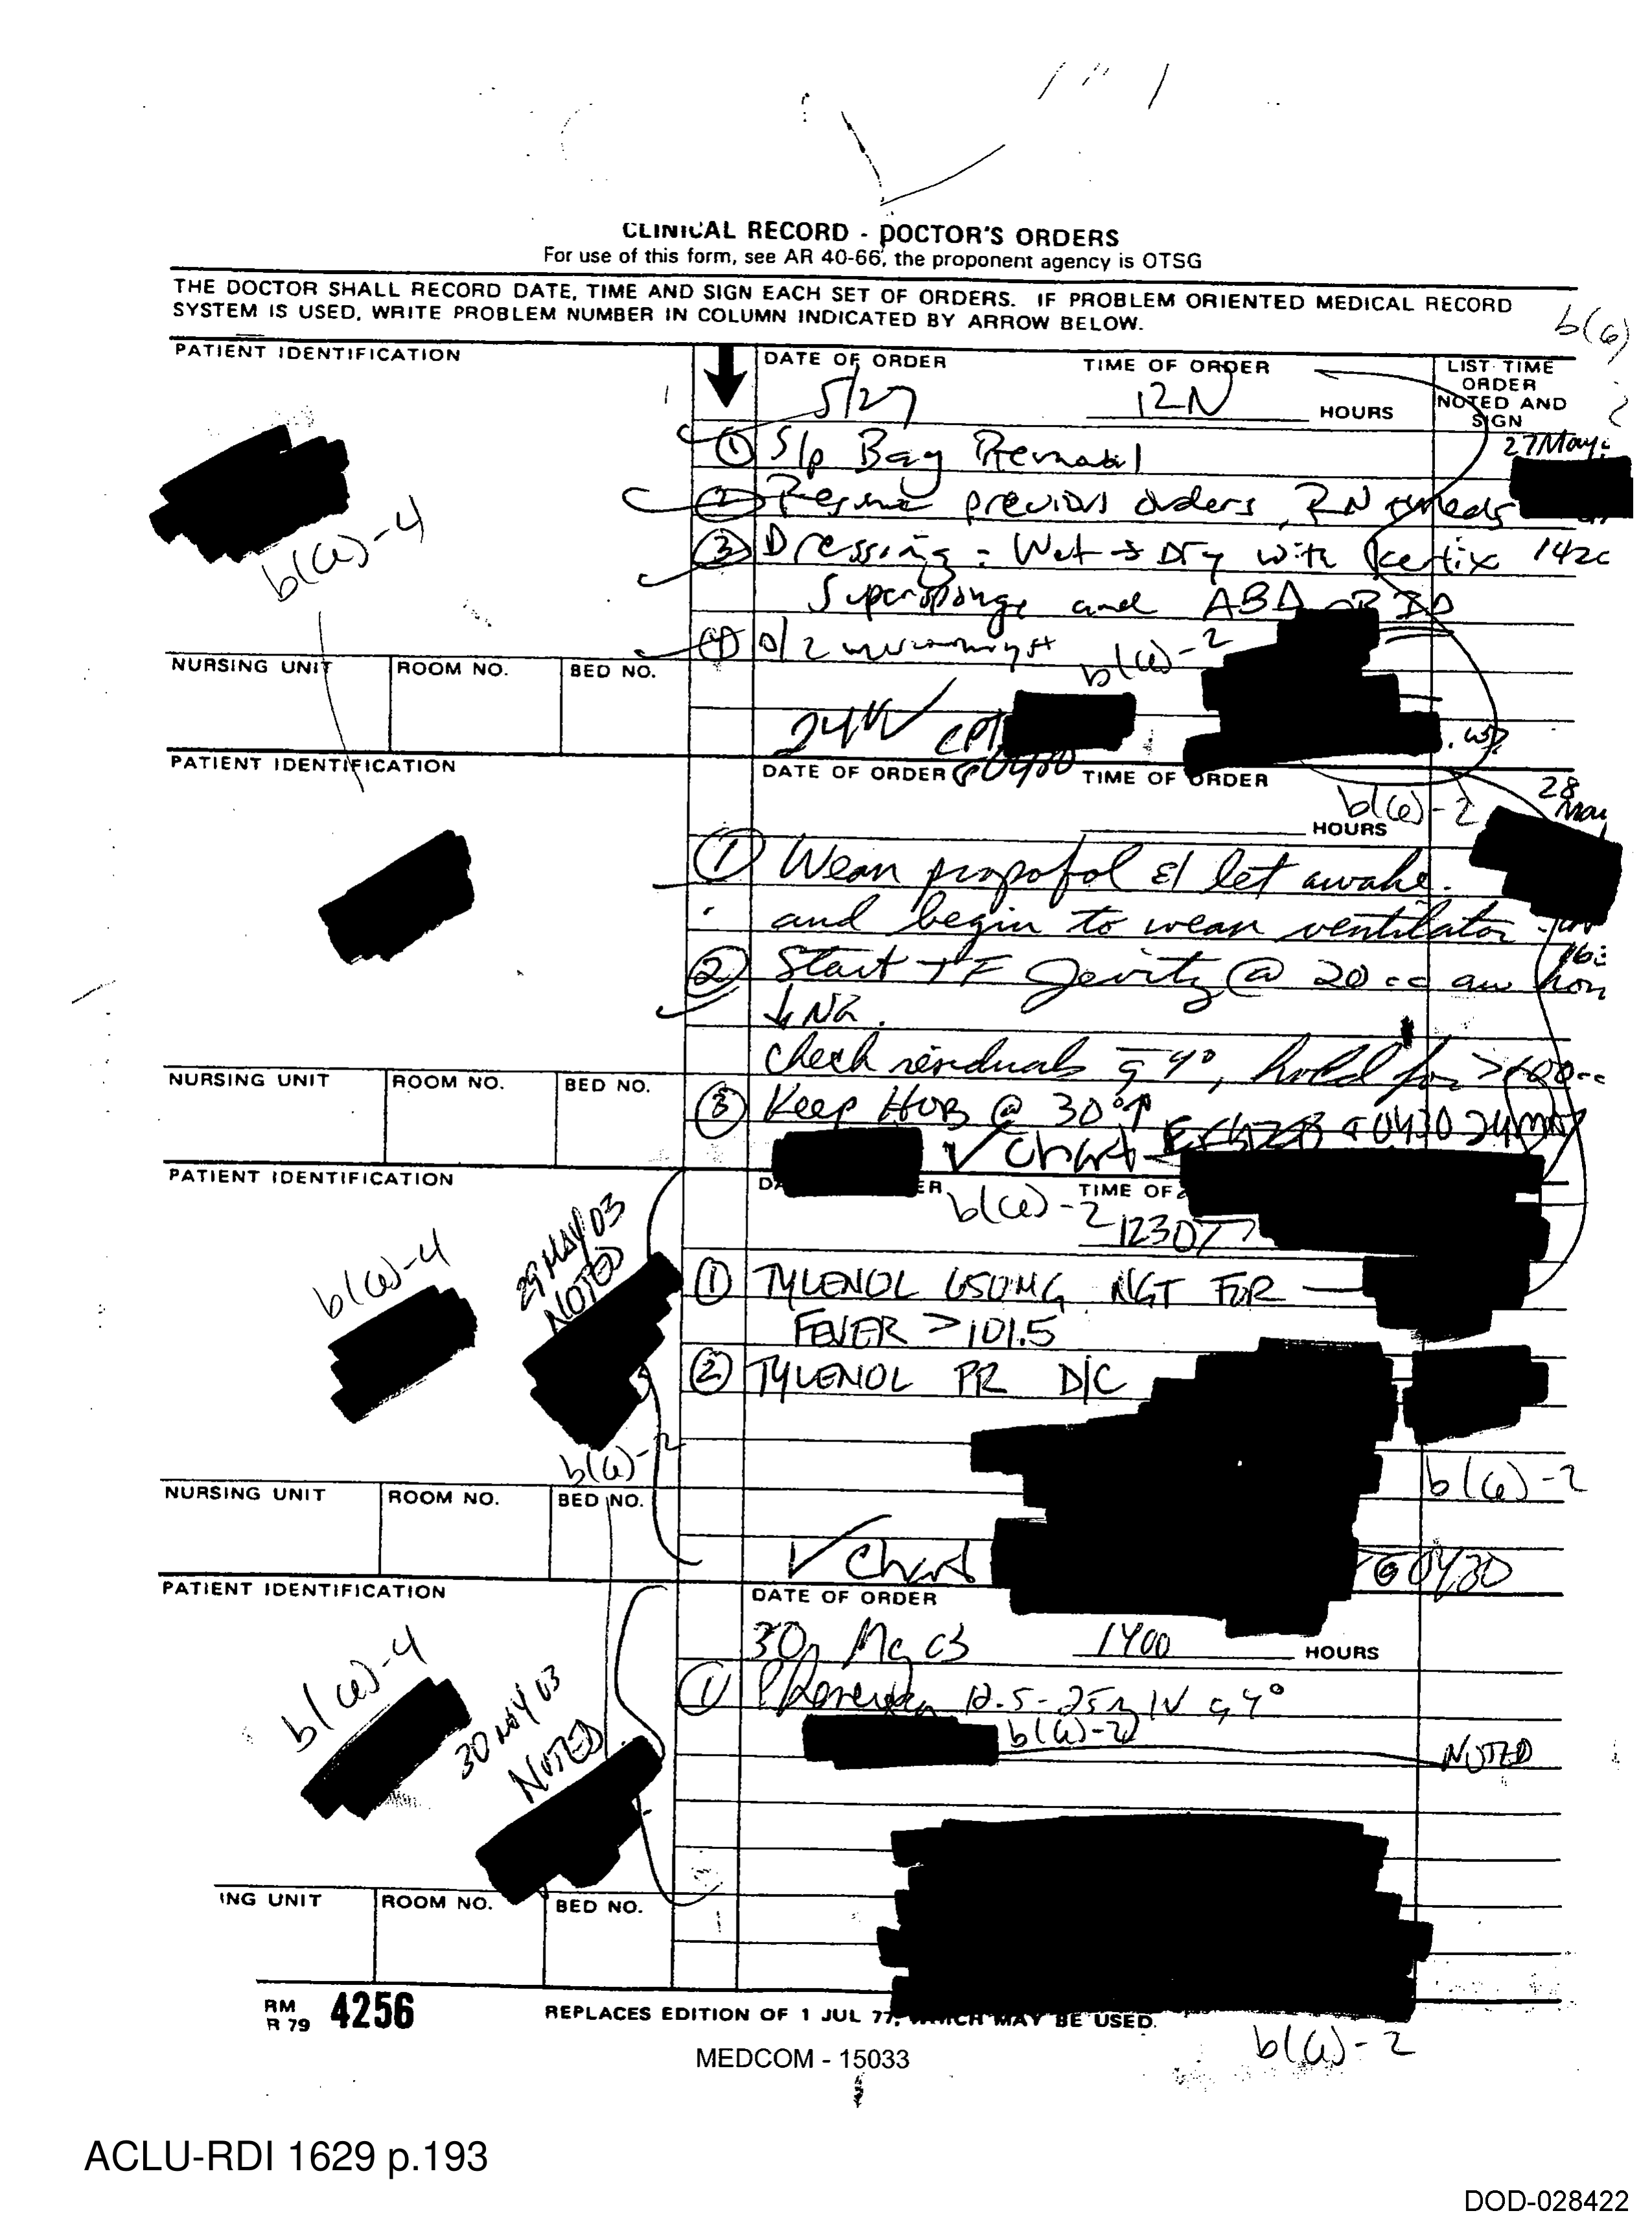 CLINICAL RECORD - DOCTOR'S ORDERS
For use of this form, see AR 40-66, the proponent agency is OTSG
THE DOCTOR SHALL RECORD DATE, TIME AND SIGN EACH SET OF ORDERS. IF PROBLEM ORIENTED MEDICAL RECORD
SYSTEM IS USED, WRITE PROBLEM NUMBER IN COLUMN INDICATED BY ARROW BELOW.
b(6)
PATIENT IDENTIFICATION
DATE OF ORDER TIME OF ORDER
LIST TIME
ORDER
NOTED AND
SIGN
5/27 12N HOURS
27 May
① S/p Bag Removal
② Resume previous orders, RN
③ Dressing: Wet → Dry with Kerlix
Supersponge and ABD BID
④
b(6)-4
b(6)-2
NURSING UNIT ROOM NO. BED NO.
CPT
PATIENT IDENTIFICATION
DATE OF ORDER 0430 TIME OF ORDER
HOURS
b(6)-2
28 May
① Wean propofol & let awake.
and begin to wean ventilator
② Start TF Jevity @ 20 cc an hour
↓ NG.
check residuals q 4°, hold for
③ Keep HOB @ 30° ↑
NURSING UNIT ROOM NO. BED NO.
✓ Chart 0430
PATIENT IDENTIFICATION
TIME OF
b(6)-2
1230
b(6)-4
29 MAY 03
NOTED
① TYLENOL 650MG NGT FOR
FEVER > 101.5
② TYLENOL PR D/C
b(6)-2
b(6)-2
NURSING UNIT ROOM NO. BED NO.
✓ Chart 0430
PATIENT IDENTIFICATION
DATE OF ORDER
30 May 03 1400 HOURS
b(6)-4
30 MAY 03
NOTED
① Phenergan 12.5-25mg IV q 4°
b(6)-2
NOTED
ING UNIT ROOM NO. BED NO.
RM
R 79 4256
REPLACES EDITION OF 1 JUL 77, WHICH MAY BE USED.
b(6)-2
MEDCOM - 15033
ACLU-RDI 1629 p.193
DOD-028422